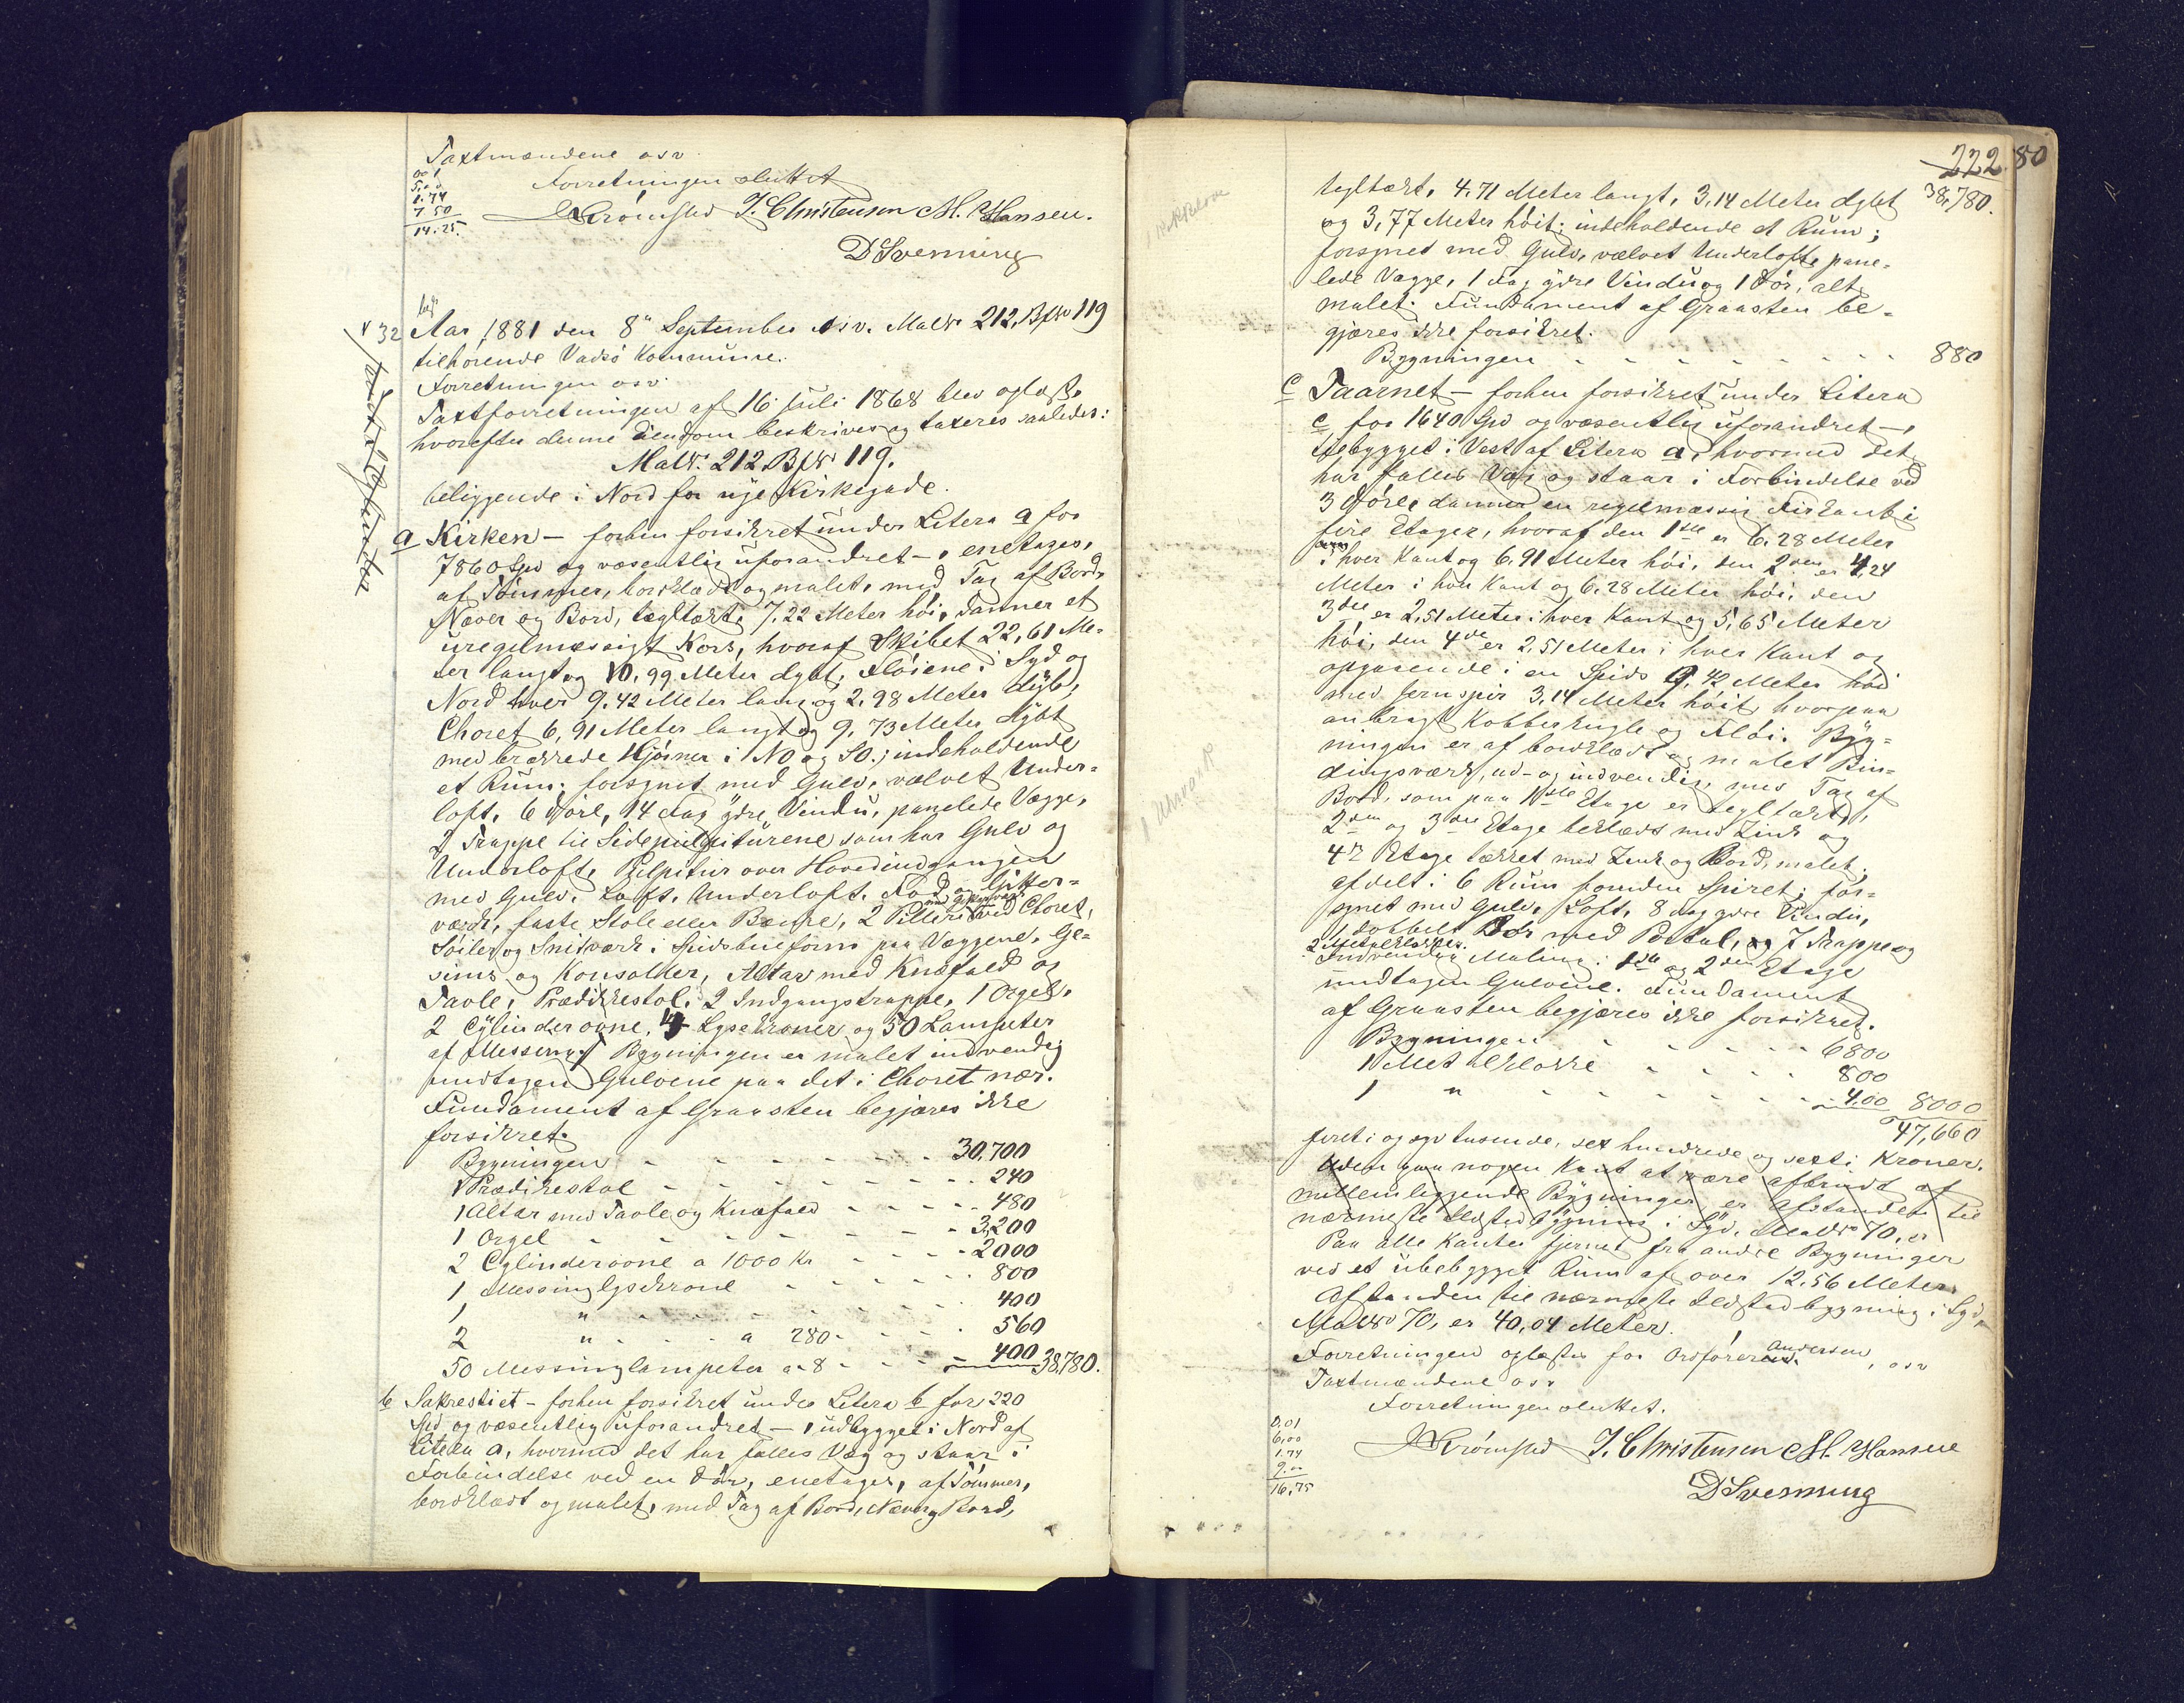 Taxtmændene osv.
Forretningen sluttet
5,00
1.74
7.50
14.25.
NStrømsted J. Christensen M. Hansen.
DSvenning
32 Aar 1881 den 8de September osv. MatNr 212, BfNr 119
tilhørende Vadsø Kommune.
Forretningen osv.
Taxtforretningen af 16 Juli 1868 blev oplæst,
hvorefter denne Eiendom beskrives og taxeres saaledes:
MatNr. 212, BfNr 119.
beliggende i Nord for nye Kirkegade.
a Kirken – forhen forsikret under Litera a for
7860 Spd og væsentlig uforandret –, enetages,
af Tømmer, bordklædt og malet, med Tag af Bord,
Næver og Bord, tegltækt, 7,22 Meter høi, danner et
uregelmæssigt Kors, hvoraf Skibet 22,61 Me-
ter langt og 10,99 Meter dybt, Fløiene i Syd og
Nord hver 9.42 Meter lang og 2,98 Meter dyb,
Choret 6,91 Meter langt og 9,73 Meter dybt
med brækkede Hjørner i NO og SO.; indeholdende
et Rum; forsynet med Gulv, vælvet Under-
loft, 6 Døre, 14 Fag ydre Vindu, panelede Vægge,
2 Trappe til Sidepulpiturene som har Gulv og
Underloft, Pulpitur over Hovedindgangen
med Gulv, Loft, Underloft, Fod og Gitter-
værk, faste Stole eller Bænke, 2 Pillere ved Choret,
Søiler og Snitværk i Spidsbueform paa Væggene, Ge-
sims og Konsoller, Altar med Knæfald og
Tavle, Prædikestol, 2 Indgangstrappe, 1 Orgel,
2 Cylinderovne, 4 Lysekroner og 50 Lampeter
af Messing. Bygningen er malet indvendig
undtagen Gulvene paa det i Choret nær.
Fundament af Graasten begjæres ikke
forsikret.
Bygningen - - - - - - 30,700
1 Prædikestol - - - - - - 240
1 Altar med Tavle og Knæfald - - - - 480
1 Orgel - - - - - - 3,200
2 Cylinderovne a 1000 Kr - - - 2000
1 Messinglysekrone - - - - - 800
1 " - - - - - 400
2 " - - - a 280 - - - 560
50 Messinglampeter a 8 - - - - 400 38,780.
b Sakrestiet – forhen forsikret under Litera b for 220
Spd og væsentlig uforandret –, udbygget i Nord af
Litera a, hvormed det har fælles Væg og staar i
Forbindelse ved en Dør, enetages, af Tømmer,
bordklædt og malet, med Tag af Bord, Næver og Bord,
222. 80
tegltækt, 4.71 Meter langt, 3,14 Meter dybt 38,780.
og 3,77 Meter høit; indeholdende et Rum;
forsynet med Gulv, vælvet Underloft, pane-
lede Vægge, 1 Fag ydre Vindu og 1 Dør, alt
malet. Fundament af Graasten be-
gjæres ikke forsikret.
Bygningen - - - - - - - - 880
c Taarnet – forhen forsikret under Litera
c for 1640 Spd og væsentlig uforandret –,
tilbygget i Vest af Litera a, hvormed det
har fælles Væg og staar i Forbindelse ved
3 Døre, danner en regelmæssig Firkant i
fire Etager, hvoraf den 1ste er 6.28 Meter
i hver Kant og 6,91 Meter høi, den 2den er 4,24
Meter i hver Kant og 6.28 Meter høi, den
3die er 2,51 Meter i hver Kant og 5,65 Meter
høi, den 4de er 2,51 Meter i hver Kant og
opgaaende i en Spids 9.42 Meter høi
med Jernspir 3,14 Meter høit, hvorpaa
anbragt Kobberkugle og Fløi. Byg-
ningen er af bordklædt og malet Bin-
dingsværk, ud- og indvendig, med Tag af
Bord, som paa 1ste Etage er tegltækt,
2den og 3die Etage beklædt med Zink og
4de Etage tækket med Zink og Bord, malet;
afdelt i 6 Rum foruden Spiret; for-
synet med Gulv, Loft, 8 Fag ydre Vindu,
1 dobbelt Dør med Portal, 7 Trappe og
2 Metalklokker.
Indvendig Maling i 1ste og 2den Etage
undtagen Gulvene. Fundament
af Graasten begjæres ikke forsikret.
Bygningen - - - - - 6800
1 Metalklokke - - - - 800
1 " - - - - - - 400 8000
47,660
firti og syv tusende, sex hundrede og sexti Kroner.
Uden paa nogen Kant at være afbrudt af
mellemliggende Bygninger, er Afstanden til
nærmeste Ildstedbygning i Syd, MatNr 70, er
Paa alle Kanter fjernet fra andre Bygninger
ved et ubebygget Rum af over 12.56 Meter.
Afstanden til nærmeste Ildstedbygning i Syd,
MatNr 70, er 40,04 Meter.
Forretningen oplæstes for Ordføreren Andersen, osv
Taxtmændene osv
Forretningen sluttet.
0,01
6,00
1.74
9.00
16,75
NStrømsted J. Christensen M. Hansen
DSvenning